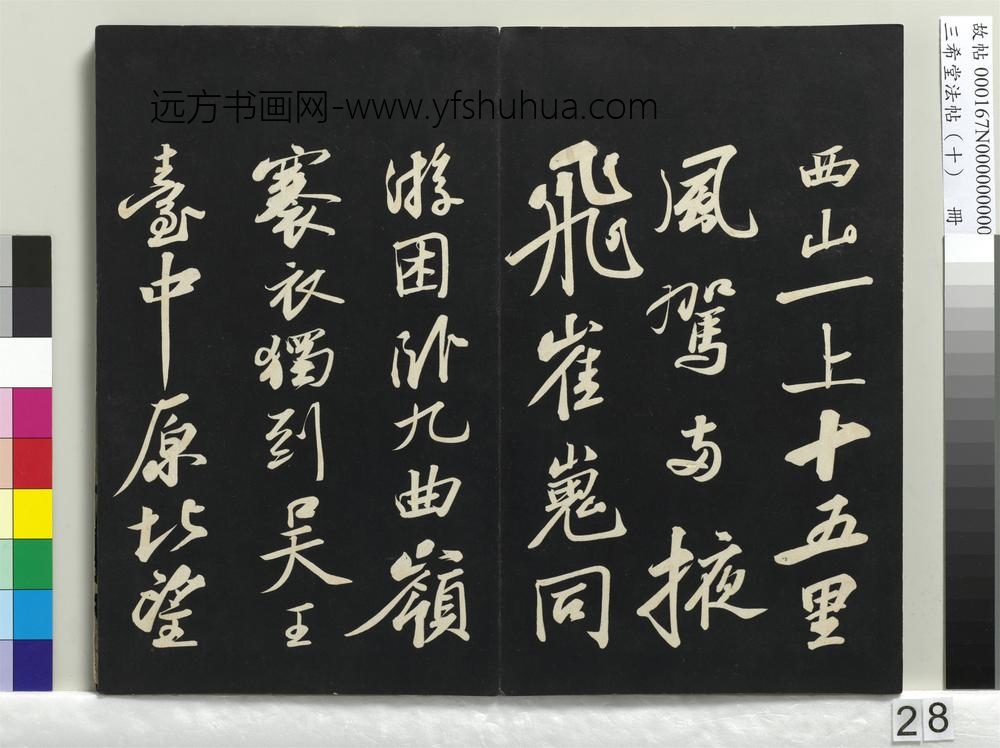 远方书画网-www.yfshuhua.com
西山一上十五里
風駕兩掖
飛崔嵬同
游困卧九曲嶺
褰衣獨到吴王
臺中原北望
故帖 000167N000000000
三希堂法帖（十） 冊
28